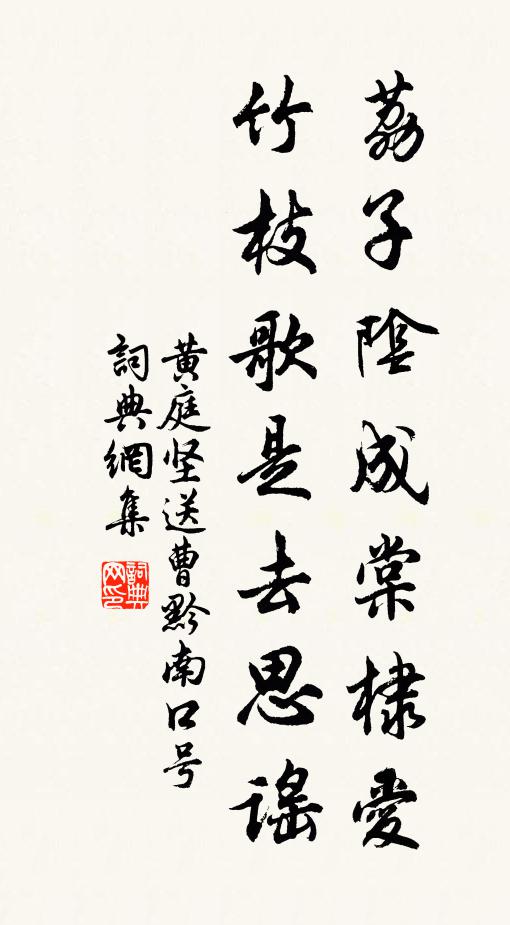 荔子陰成棠棣愛
竹枝歌是去思謠
黄庭坚送曹黔南口号
詞典網集
詞典网印